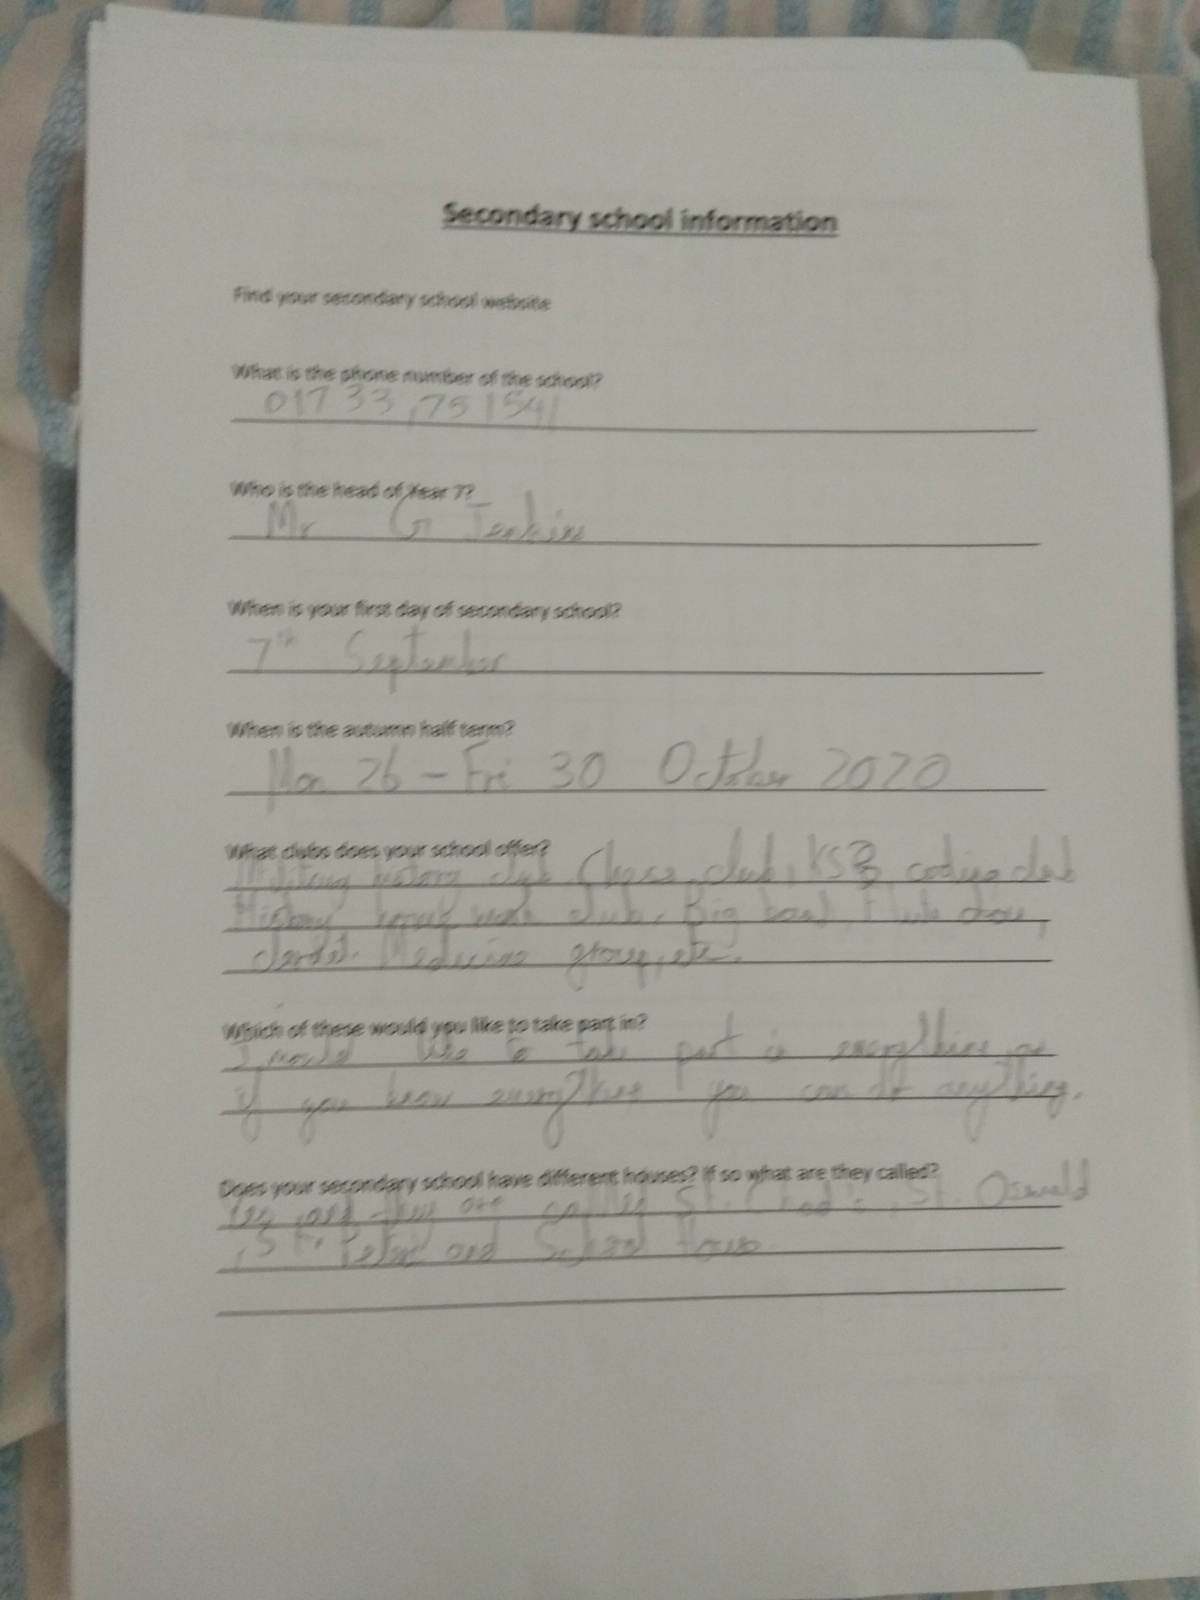 Secondary school information
Find your secondary school website
What is the phone number of the school?
01733,751541
Who is the head of Year 7?
Mr G Jenkins
When is your first day of secondary school?
7th September
When is the autumn half term?
Mon 26 - Fri 30 October 2020
What clubs does your school offer?
Military history club, Chess club, KS3 coding club
History work club, Big band, Flute choir,
Medicine group, etc.
Which of these would you like to take part in?
I would like to take part in everything as
if you know everything you can do anything.
Does your secondary school have different houses? If so what are they called?
Yes and they are called St. Chad's, St. Oswald
, St. Peters and School House